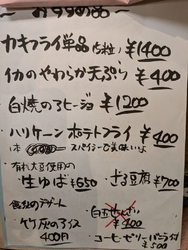 〜 おすすめ品 〜
カキフライ単品 ¥1400
イカのやわらか天ぷら ¥400
白焼のアヒージョ ¥1200
ハリケーンポテトフライ ¥400
1本 スパイシーで美味いよ
有機大豆使用の
生ゆば ¥650 ざる豆腐 ¥700
食後のデザート
竹炭のアイス
400円
白玉ぜんざい
¥400
コーヒーゼリーバニラアイス
¥500